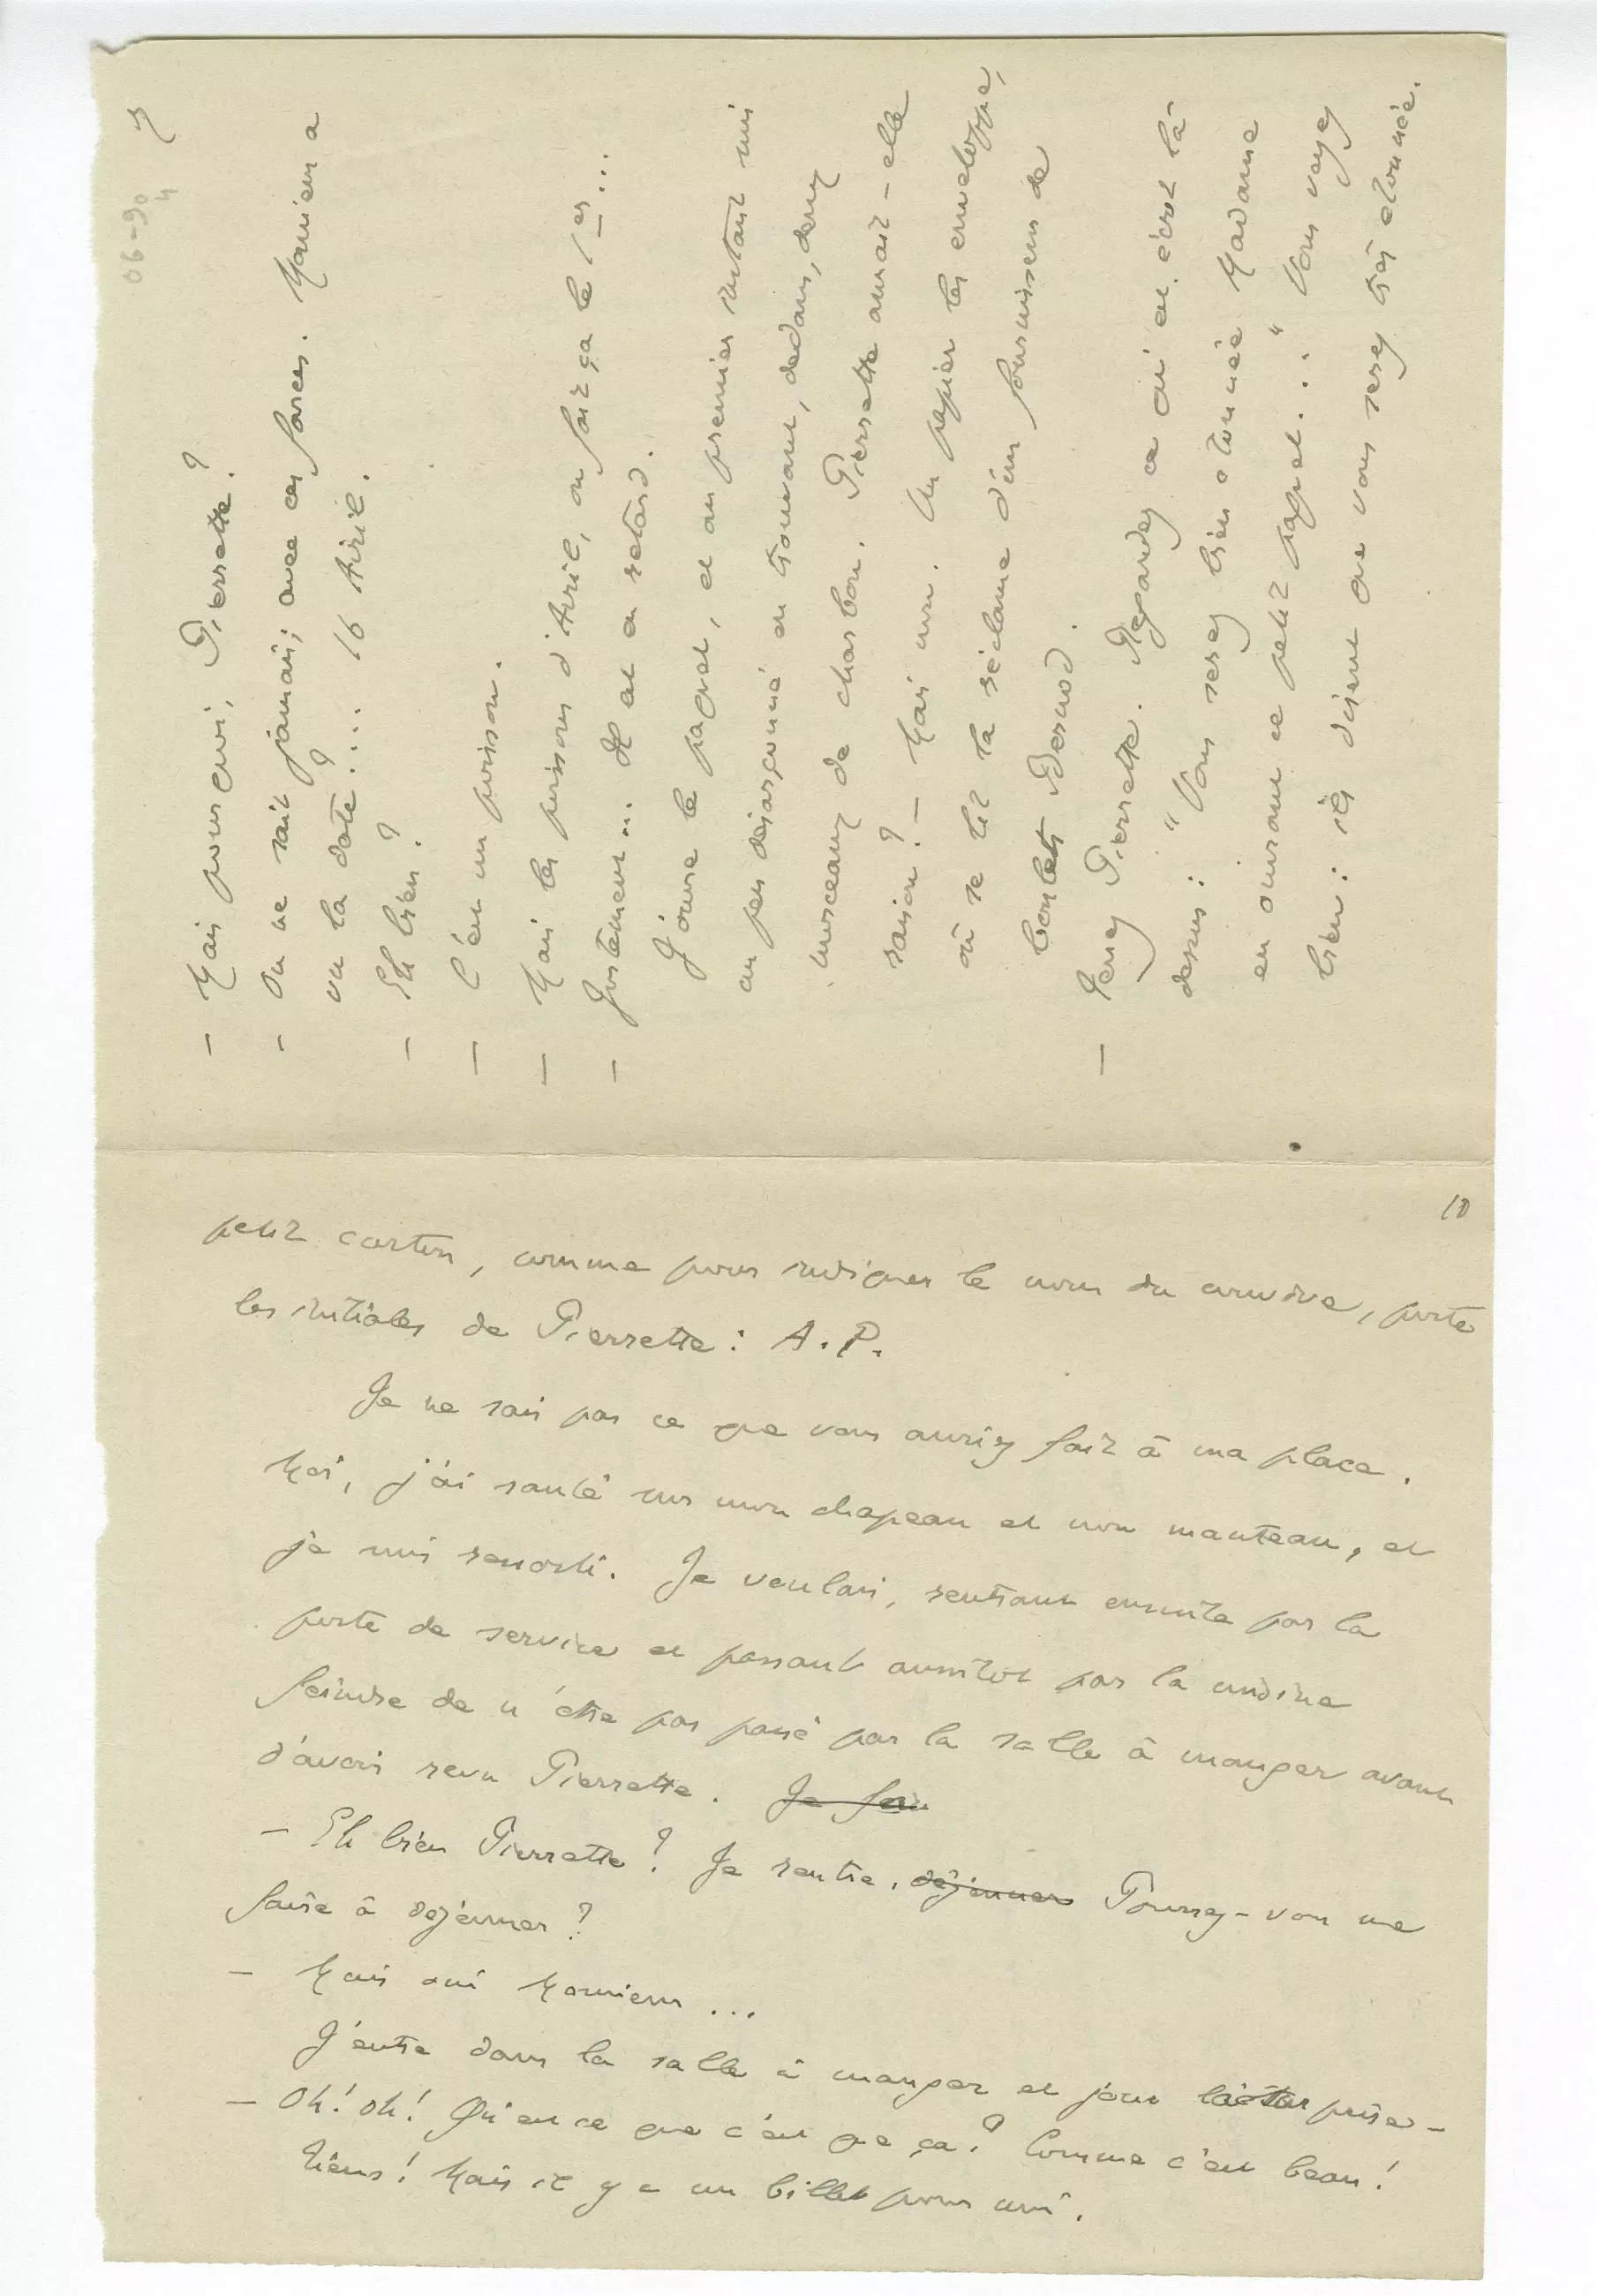 06-90
4
3
— Mais pourquoi, Pierrette?
— On ne sait jamais; avec ces farces. Monsieur a
vu la date?... 16 Avril.
— Eh bien?
— C'est un poisson.
— Mais les poissons d'Avril, on fait ça le 1er...
— Justement... Il est en retard.
J'ouvre le paquet, et au premier instant suis
un peu désarçonné en trouvant, dedans, deux
morceaux de charbon. Pierrette aurait-elle
raison? — Mais non. Un papier les enveloppe,
où se lit la réclame d'un fournisseur de
boulets Bernod.
— Tenez Pierrette. Regardez ce qui est écrit là-
dessus: "Vous serez bien étonnée Madame
en ouvrant ce petit paquet..." Vous voyez
bien: ils disent que vous serez très étonnée.
10
petit carton, comme pour indiquer le nom du convive, porte
les initiales de Pierrette: A.P.
Je ne sais pas ce que vous auriez fait à ma place.
Moi, j'ai sauté sur mon chapeau et mon manteau, et
je suis ressorti. Je voulais, rentrant ensuite par la
porte de service et passant aussitôt par la cuisine
feindre de n'être pas passé par la salle à manger avant
d'avoir revu Pierrette. Je fais
— Eh bien Pierrette! Je rentre. déjeuner Pourrez-vous me
faire à déjeuner?
— Mais oui Monsieur...
J'entre dans la salle à manger et joue la surprise —
— Oh! oh! Qu'est ce que c'est que ça? Comme c'est beau!
Tiens! Mais il y a un billet pour moi.